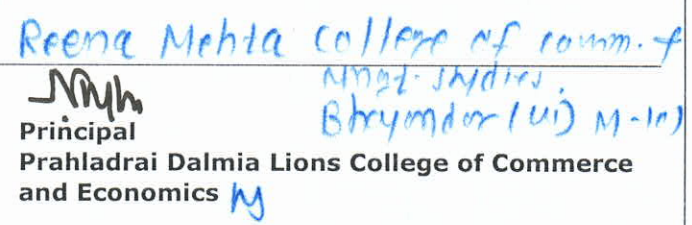 Reena Mehta College of comm. &
Mngt. studies,
Bhayandar (W) M-101
Principal
Prahladrai Dalmia Lions College of Commerce
and Economics